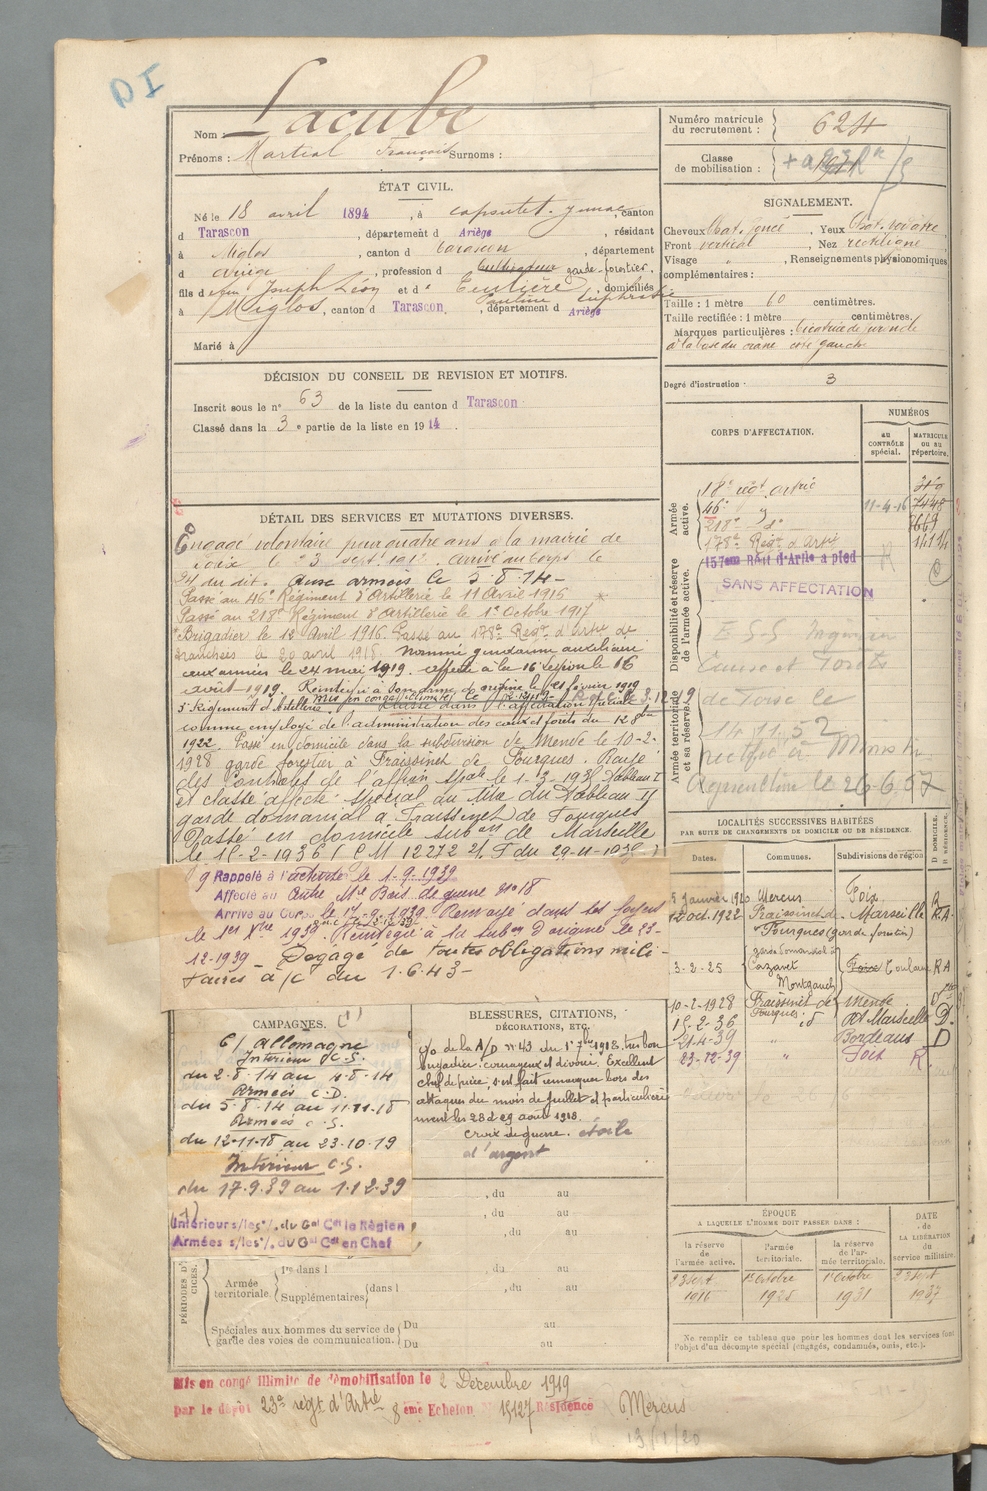 DI
Nom : Lacube
Prénoms : Martial François Surnoms :
Numéro matricule du recrutement : 624
Classe de mobilisation :
ÉTAT CIVIL.
Né le 18 avril 1894, à capoulet-junac, canton
d Tarascon, département d Ariège, résidant
à Miglos, canton d tarascon, département
d ariège, profession d cultivateur garde-forestier.
fils de feu Joseph Léon et d Eulière, domiciliés
à Miglos, canton Tarascon, département d Ariège
Marié à
SIGNALEMENT.
Cheveux chat. foncé. Yeux chat. verdâtre
Front vertical, Nez rectiligne
Visage, Renseignements physionomiques
complémentaires :
Taille : 1 mètre 60 centimètres.
Taille rectifiée : 1 mètre centimètres.
Marques particulières : Cicatrice de furoncle
à la base du crane coté gauche
Degré d'instruction : 3
DÉCISION DU CONSEIL DE REVISION ET MOTIFS.
Inscrit sous le n° 63 de la liste du canton d Tarascon
Classé dans la 3e partie de la liste en 1914.
DÉTAIL DES SERVICES ET MUTATIONS DIVERSES.
Engagé volontaire pour quatre ans à la mairie de
Foix le 3 sept. Arrivé au corps le
du dit. Aux armées le 5-8-14-
Passé au 46e Régiment d'Artillerie le 11 Avril 1916
Passé au 218e Régiment d'Artillerie le 1er Octobre 1917
Brigadier le 12 Avril 1916. Passé au 178e Regt d'Artie de
tranchées le 20 avril 1918. Nommé gendarme auxiliaire
aux armées le 24 mai 1919. affecté à la 16e légion le 16
août 1919. Réintégré à son arme d'origine le 21 février 1919
Classé dans l'affectation spéciale
comme employé de l'administration des eaux et forêts du
1922. Passé en domicile dans la subdivision de Mende le 10-2-
1928 garde forestier à Fraissinet de Fourques. Rayé
des Contrôles de l'affon spale le 1-3-193 Tableau I
et classé affecté spécial au titre du Tableau II
garde domanial à Fraissinet de Fourques
Passé en domicile subon de Marseille
le 15-2-1936 (C M 12272
Rappelé à l'activité le 1-9-1939
Affecté au Centre Mel Bois de guerre n° 18
Arrivé au Corps le 17-9-1939. Renvoyé dans ses foyers
le 1er Xbre 1939. Réintégré à la subon d'origine le 23-
12-1939 - Dégagé de toutes obligations mili-
taires à/c du 1.6.43-
CORPS D'AFFECTATION.
NUMÉROS
au CONTRÔLE spécial.
MATRICULE ou au répertoire.
Armée active.
18e regt artie
46e d° 11-4-16 7448
218e d°
178e Regt d'Artie
Disponibilité et réserve de l'armée active.
157em Rént d'Artie à pied
SANS AFFECTATION
Armée territoriale et sa réserve.
LOCALITÉS SUCCESSIVES HABITÉES
PAR SUITE DE CHANGEMENTS DE DOMICILE OU DE RÉSIDENCE.
Dates. Communes. Subdivisions de région
5 janvier 1920 Mercus Foix R
12 oct. 1922 Fraissinet de Fourques (garde forestier) Marseille RA
3-2-25 garde domanial à Cazaret Montgauch Foix Toulouse RA
10-2-1928 Fraissinet de Fourques Mende
15-2-36 d° Marseille D.
21-4-39 " Bordeaux D
23-12-39 " Foix R
CAMPAGNES. (1)
C/ Allemagne
Intérieur C.S.
du 2-8-14 au 4-8-14
Armées C.D.
du 5-8-14 au 11-11-18
Armées C.S.
du 12-11-18 au 23.10.19
Intérieur C.S.
du 17.9.39 au 1.12.39
Intérieur s/les o/. du Gal Cdt la Région
Armées s/les o/. du Gal Cdt en Chef
BLESSURES, CITATIONS,
DÉCORATIONS, ETC.
de la A/D n° 43 du 1er 7bre 1918, très bon
brigadier. courageux et dévoué. Excellent
chef de pièce, s'est fait remarquer lors des
attaques du mois de Juillet et particulière-
ment les 28 et 29 août 1918.
Croix de guerre. étoile
d'argent
, du au
, du au
, du au
Armée territoriale
1re dans l
Supplémentaires dans l
, du au
, du au
Spéciales aux hommes du service de garde des voies de communication.
Du au
Du au
ÉPOQUE
A LAQUELLE L'HOMME DOIT PASSER DANS :
la réserve de l'armée active.
l'armée territoriale.
la réserve de l'armée territoriale.
DATE de LA LIBÉRATION du service militaire.
1er Octobre
1er Octobre
1931
Ne remplir ce tableau que pour les hommes dont les services font
l'objet d'un décompte spécial (engagés, condamnés, omis, etc.).
Mis en congé illimité de démobilisation le 2 Décembre 1919
par le dépôt 23e regt d'Artie 8ème Echelon 15127 résidence Mercus